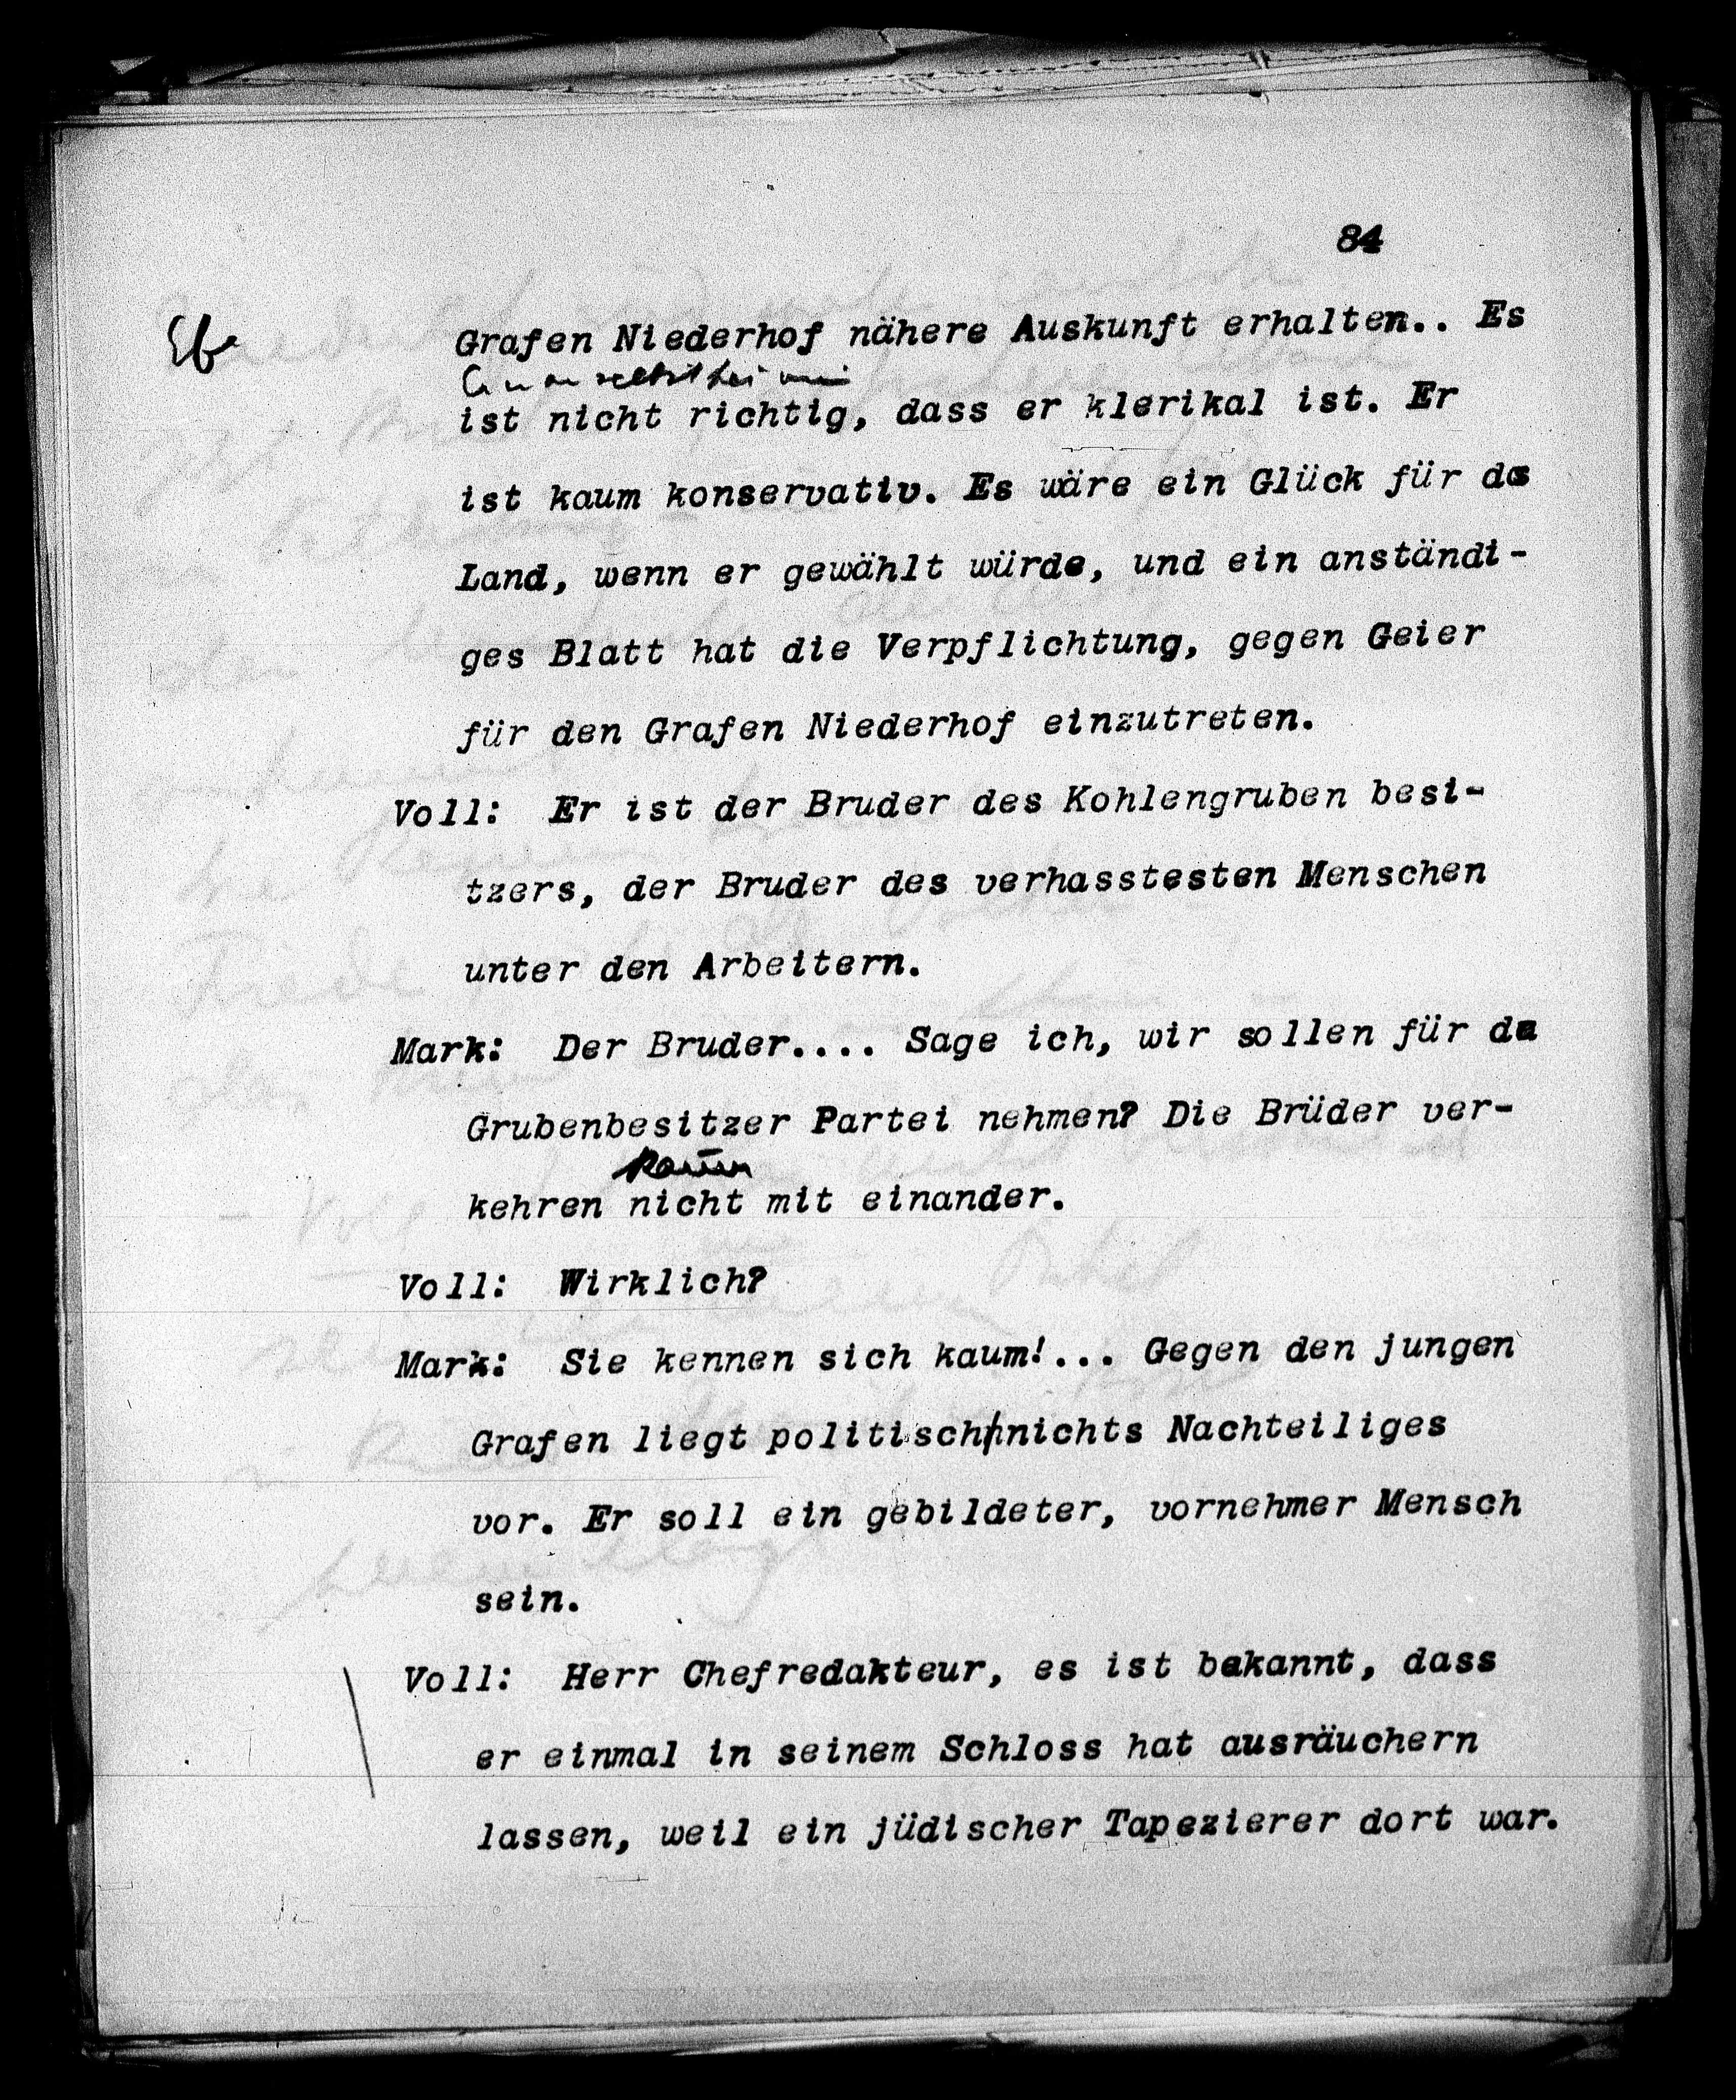 84
Grafen Niederhof nähere Auskunft erhalten.. Es
ist nicht richtig, dass er klerikal ist. Er
ist kaum konservativ. Es wäre ein Glück für das
Land, wenn er gewählt würde, und ein anständi-
ges Blatt hat die Verpflichtung, gegen Geier
für den Grafen Niederhof einzutreten.
Voll: Er ist der Bruder des Kohlengruben besi-
tzers, der Bruder des verhasstesten Menschen
unter den Arbeitern.
Mark: Der Bruder.... Sage ich, wir sollen für
Grubenbesitzer Partei nehmen? Die Brüder ver-
kaum
kehren nicht mit einander.
Voll: Wirklich?
Mark: Sie kennen sich kaum!... Gegen den jungen
Grafen liegt politisch nichts Nachteiliges
vor. Er soll ein gebildeter, vornehmer Mensch
sein.
Voll: Herr Chefredakteur, es ist bekannt, dass
er einmal in seinem Schloss hat ausräuchern
lassen, weil ein jüdischer Tapezierer dort war.